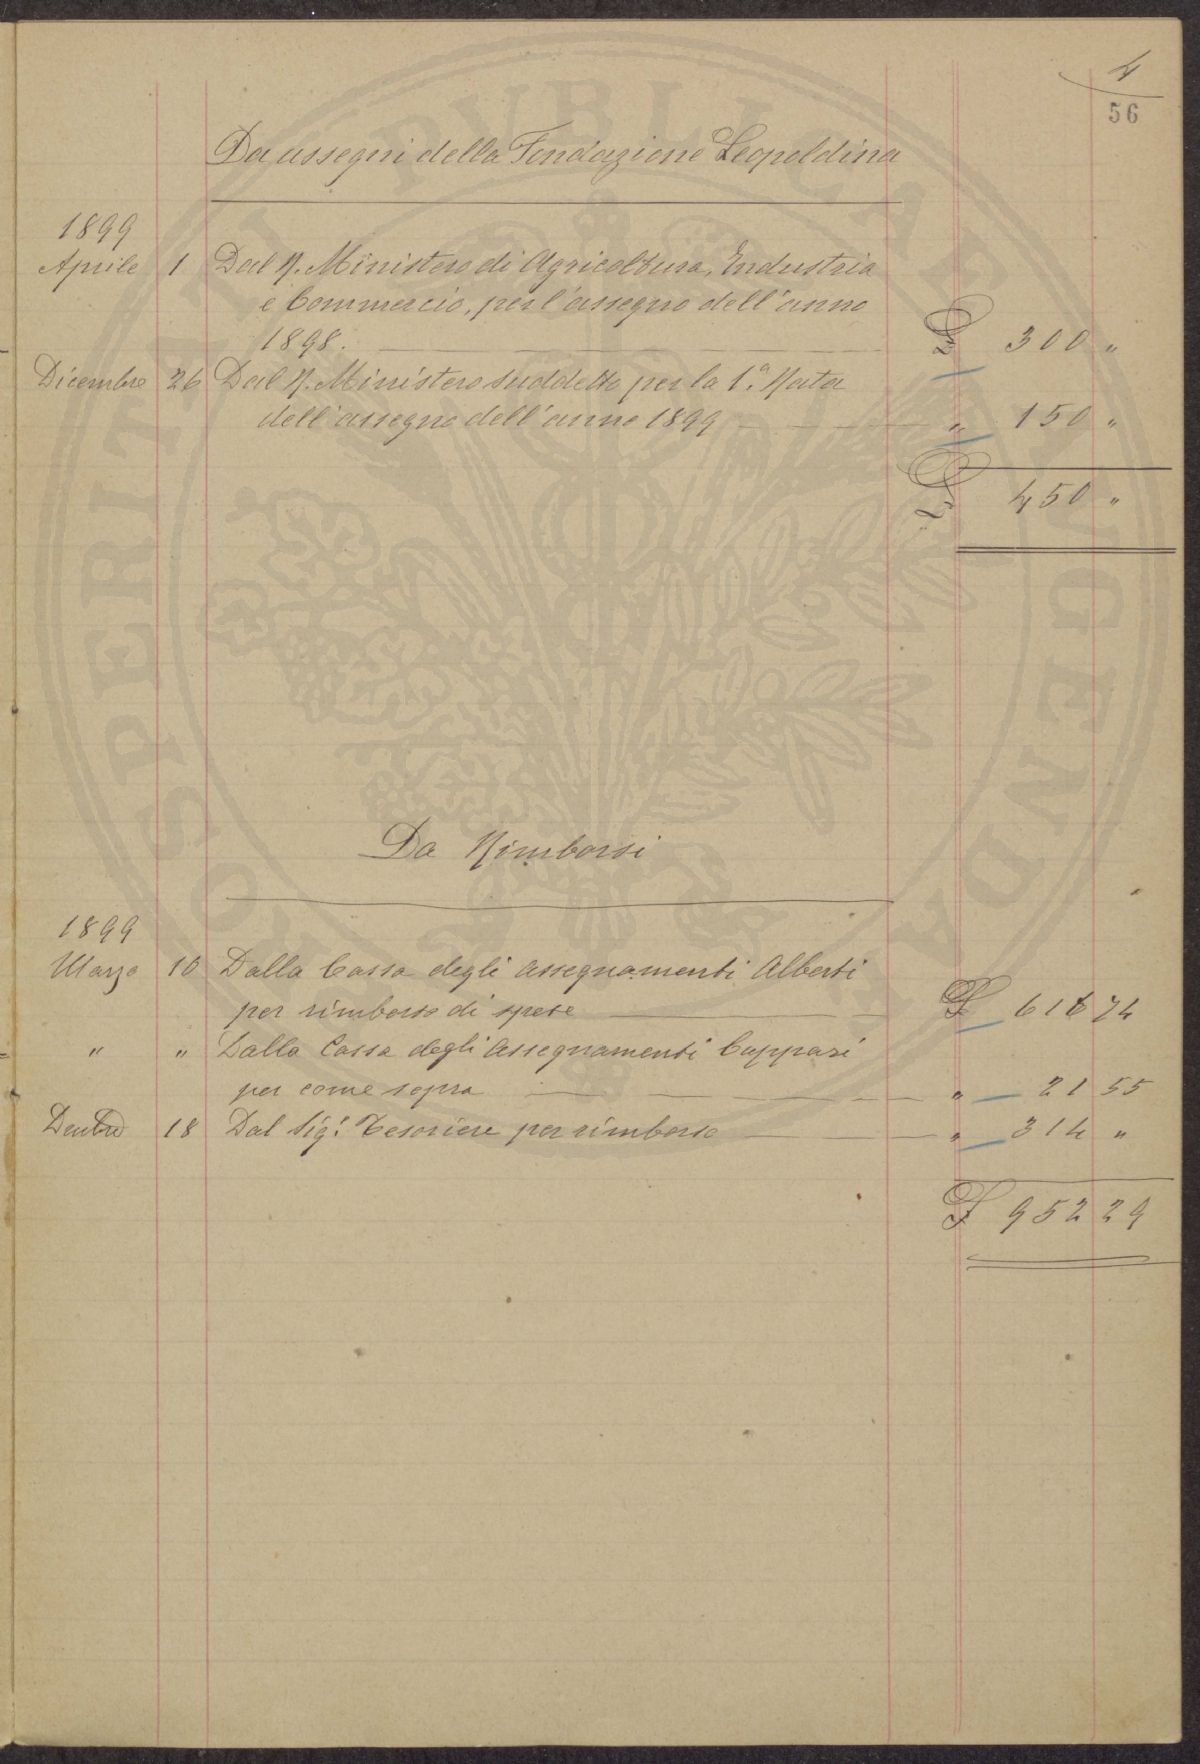 4
56
Da assegni della Fondazione Leopoldina
1899
Aprile 1 Dal R. Ministero di Agricoltura, Industria
e Commercio, per l'assegno dell'anno
1898. £ 300 "
Dicembre 26 Dal R. Ministero suddetto per la 1.a Rata
dell'assegno dell'anno 1899 " 150 "
£ 450 "
Da Rimborsi
1899
Marzo 10 Dalla Cassa degli assegnamenti Alberti
per rimborso di spese £ 616 74
" " Dalla Cassa degli Assegnamenti Cuppari
per come sopra " 21 55
Dembre 18 Dal Sig.r Tesoriere per rimborso " 314 "
£ 952 29
PROSPERITATI PUBLICAE AUGENDAE